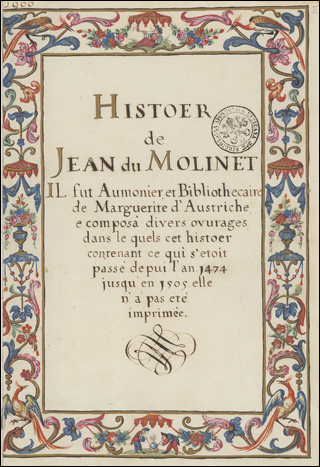 1900
HISTOER
de
JEAN du MOLINET
IL fut Aumonier et Bibliothecaire
de Marguerite d'Austriche
e composà divers ouvrages
dans le quels cet histoer
contenant ce qui s'etoit
passé depui l'an 1474
jusqu'en 1505 elle
n'à pas eté
imprimée.